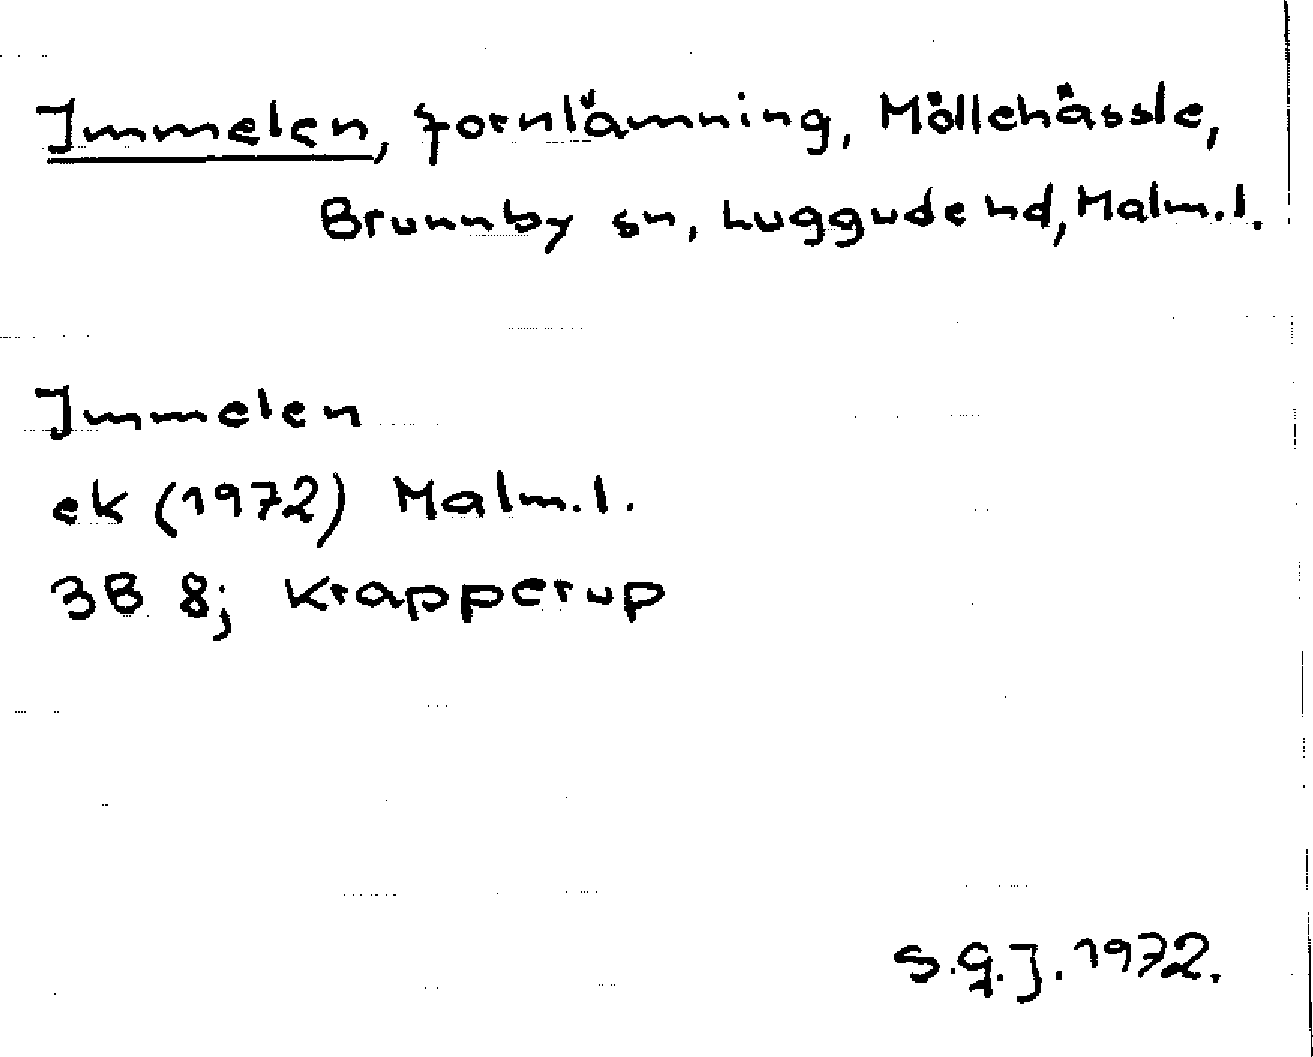 Immelen, fornlämning, Möllehässle,
Brunnby sn, Luggude hd, Malm.l.
Immelen
ek (1972) Malm.l.
3B 8; Krapperup
S.G.J. 1972.